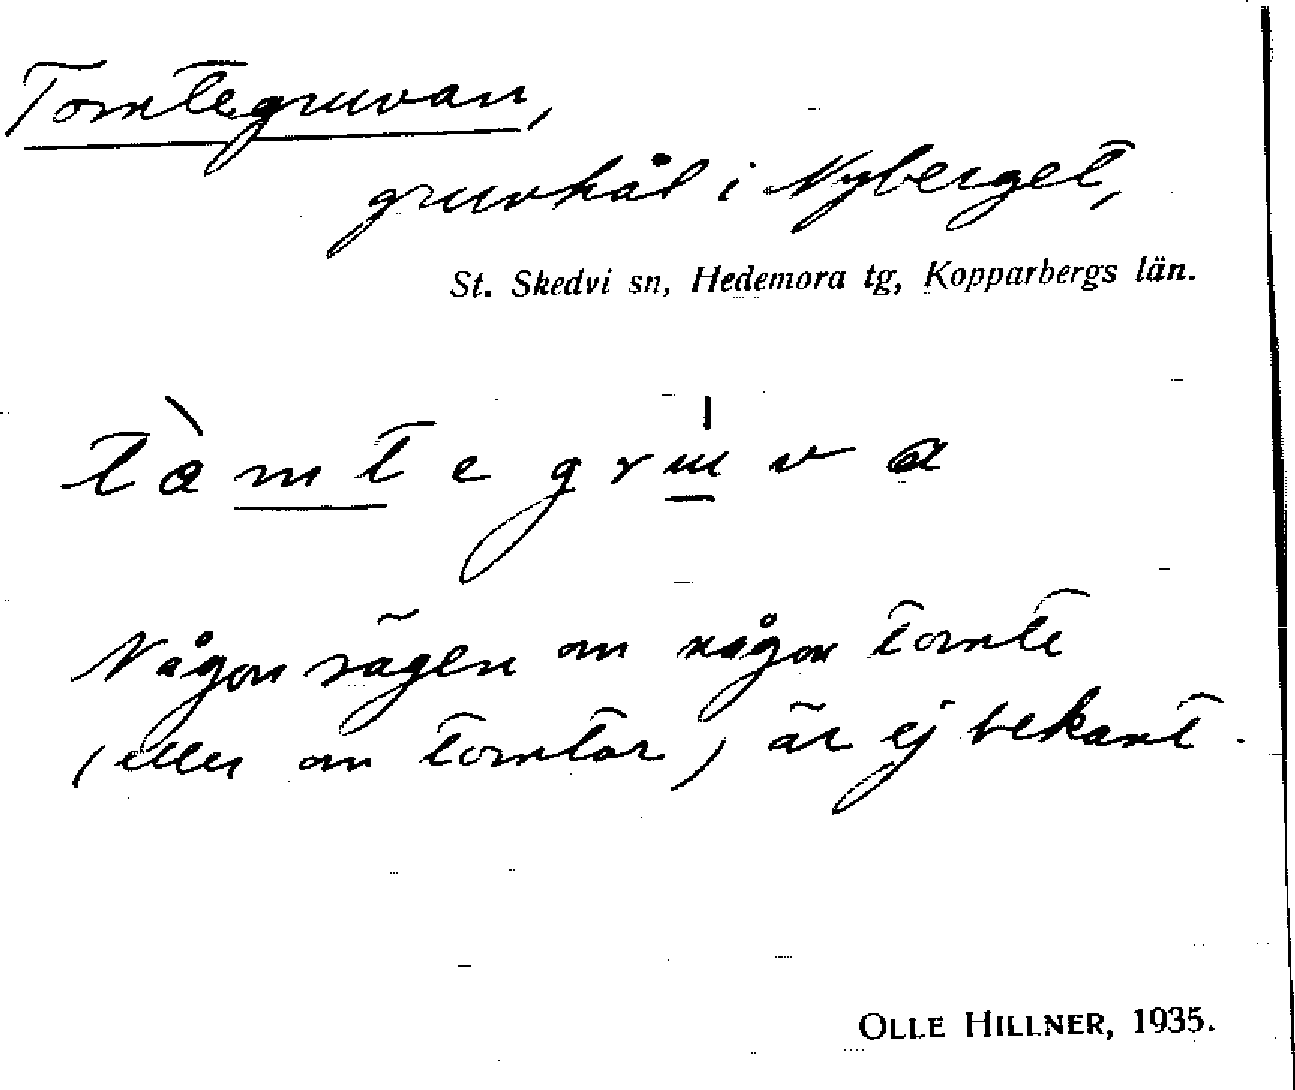 Tomtegruvan,
gruvhål i Nyberget,
St. Skedvi sn, Hedemora tg, Kopparbergs län.
tòmtegruva
Någon sägen om någon tomte
(eller om tomtar) är ej bekant.
OLLE HILLNER, 1935.